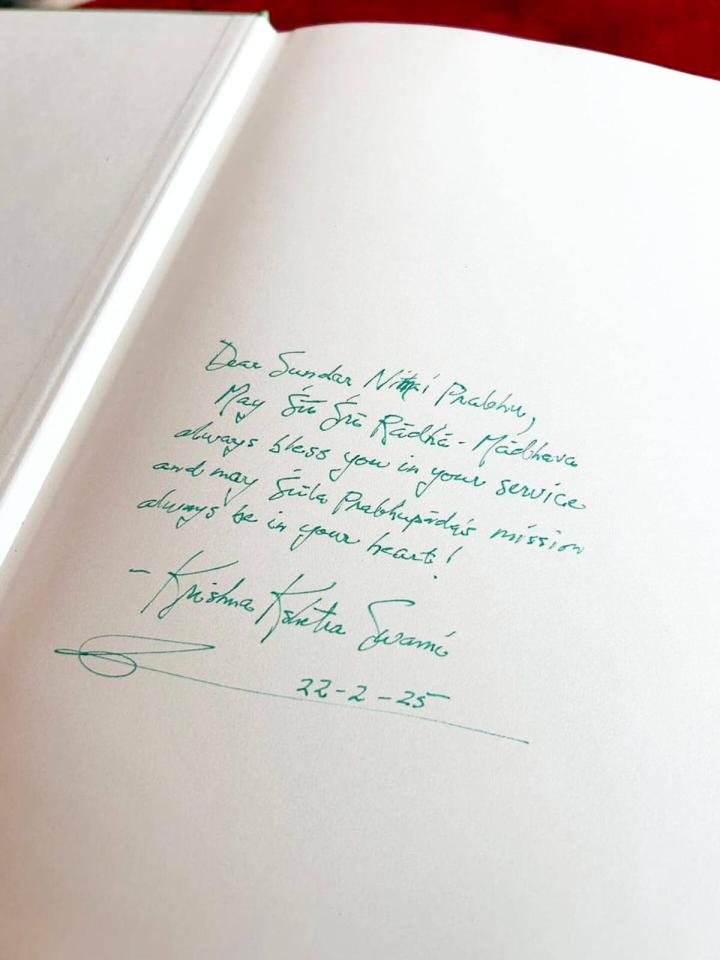 Dear Sundar Nitai Prabhu,
May Śrī Śrī Rādhā-Mādhava
always bless you in your service
and may Śrīla Prabhupāda's mission
always be in your heart!
- Krishna Kshetra Swami
22-2-25